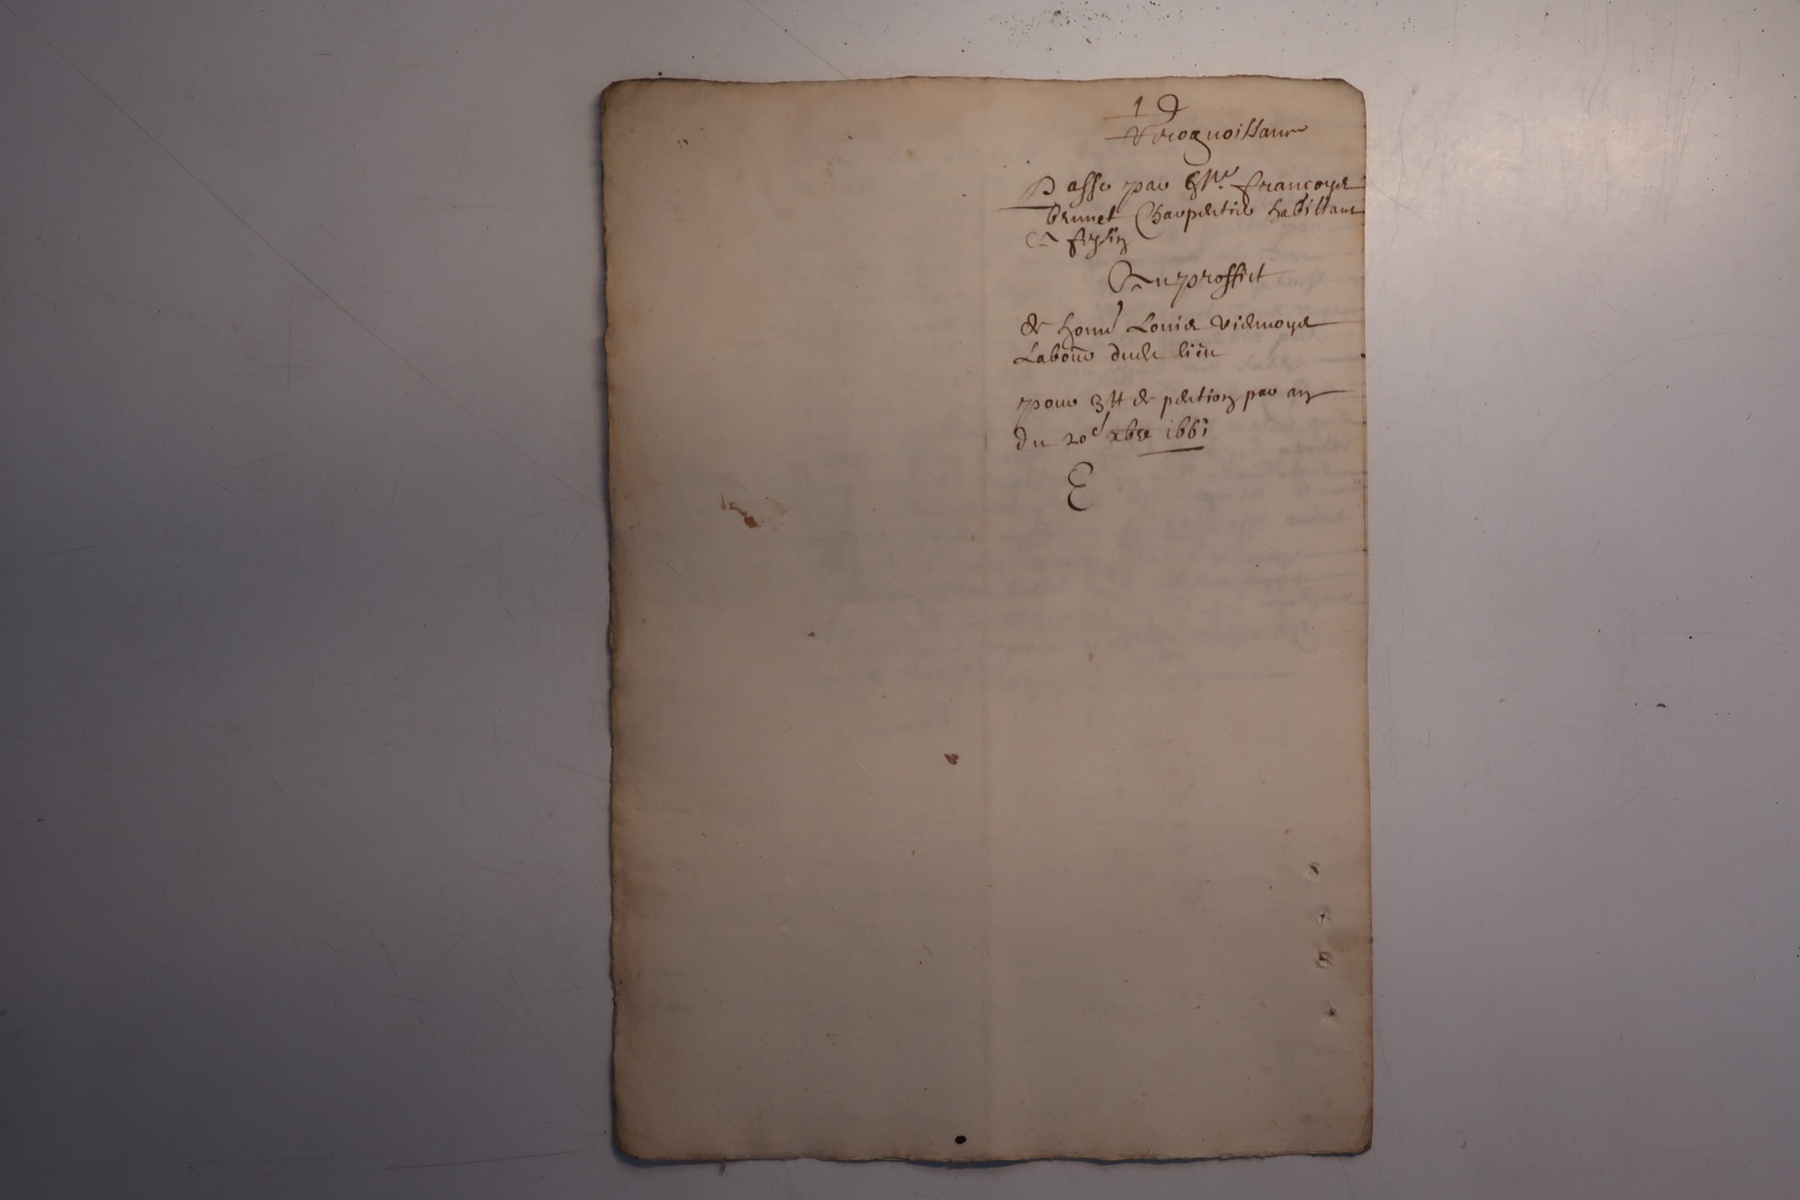 19
Recognoissance
Passe par Mre. francoys
brunet Charpentier habittant
a fezin
Au proffict
de honn Louis viemoys
Labour dud lieu
pour 3 lt de pention par an
du 20e xbre 1661
E